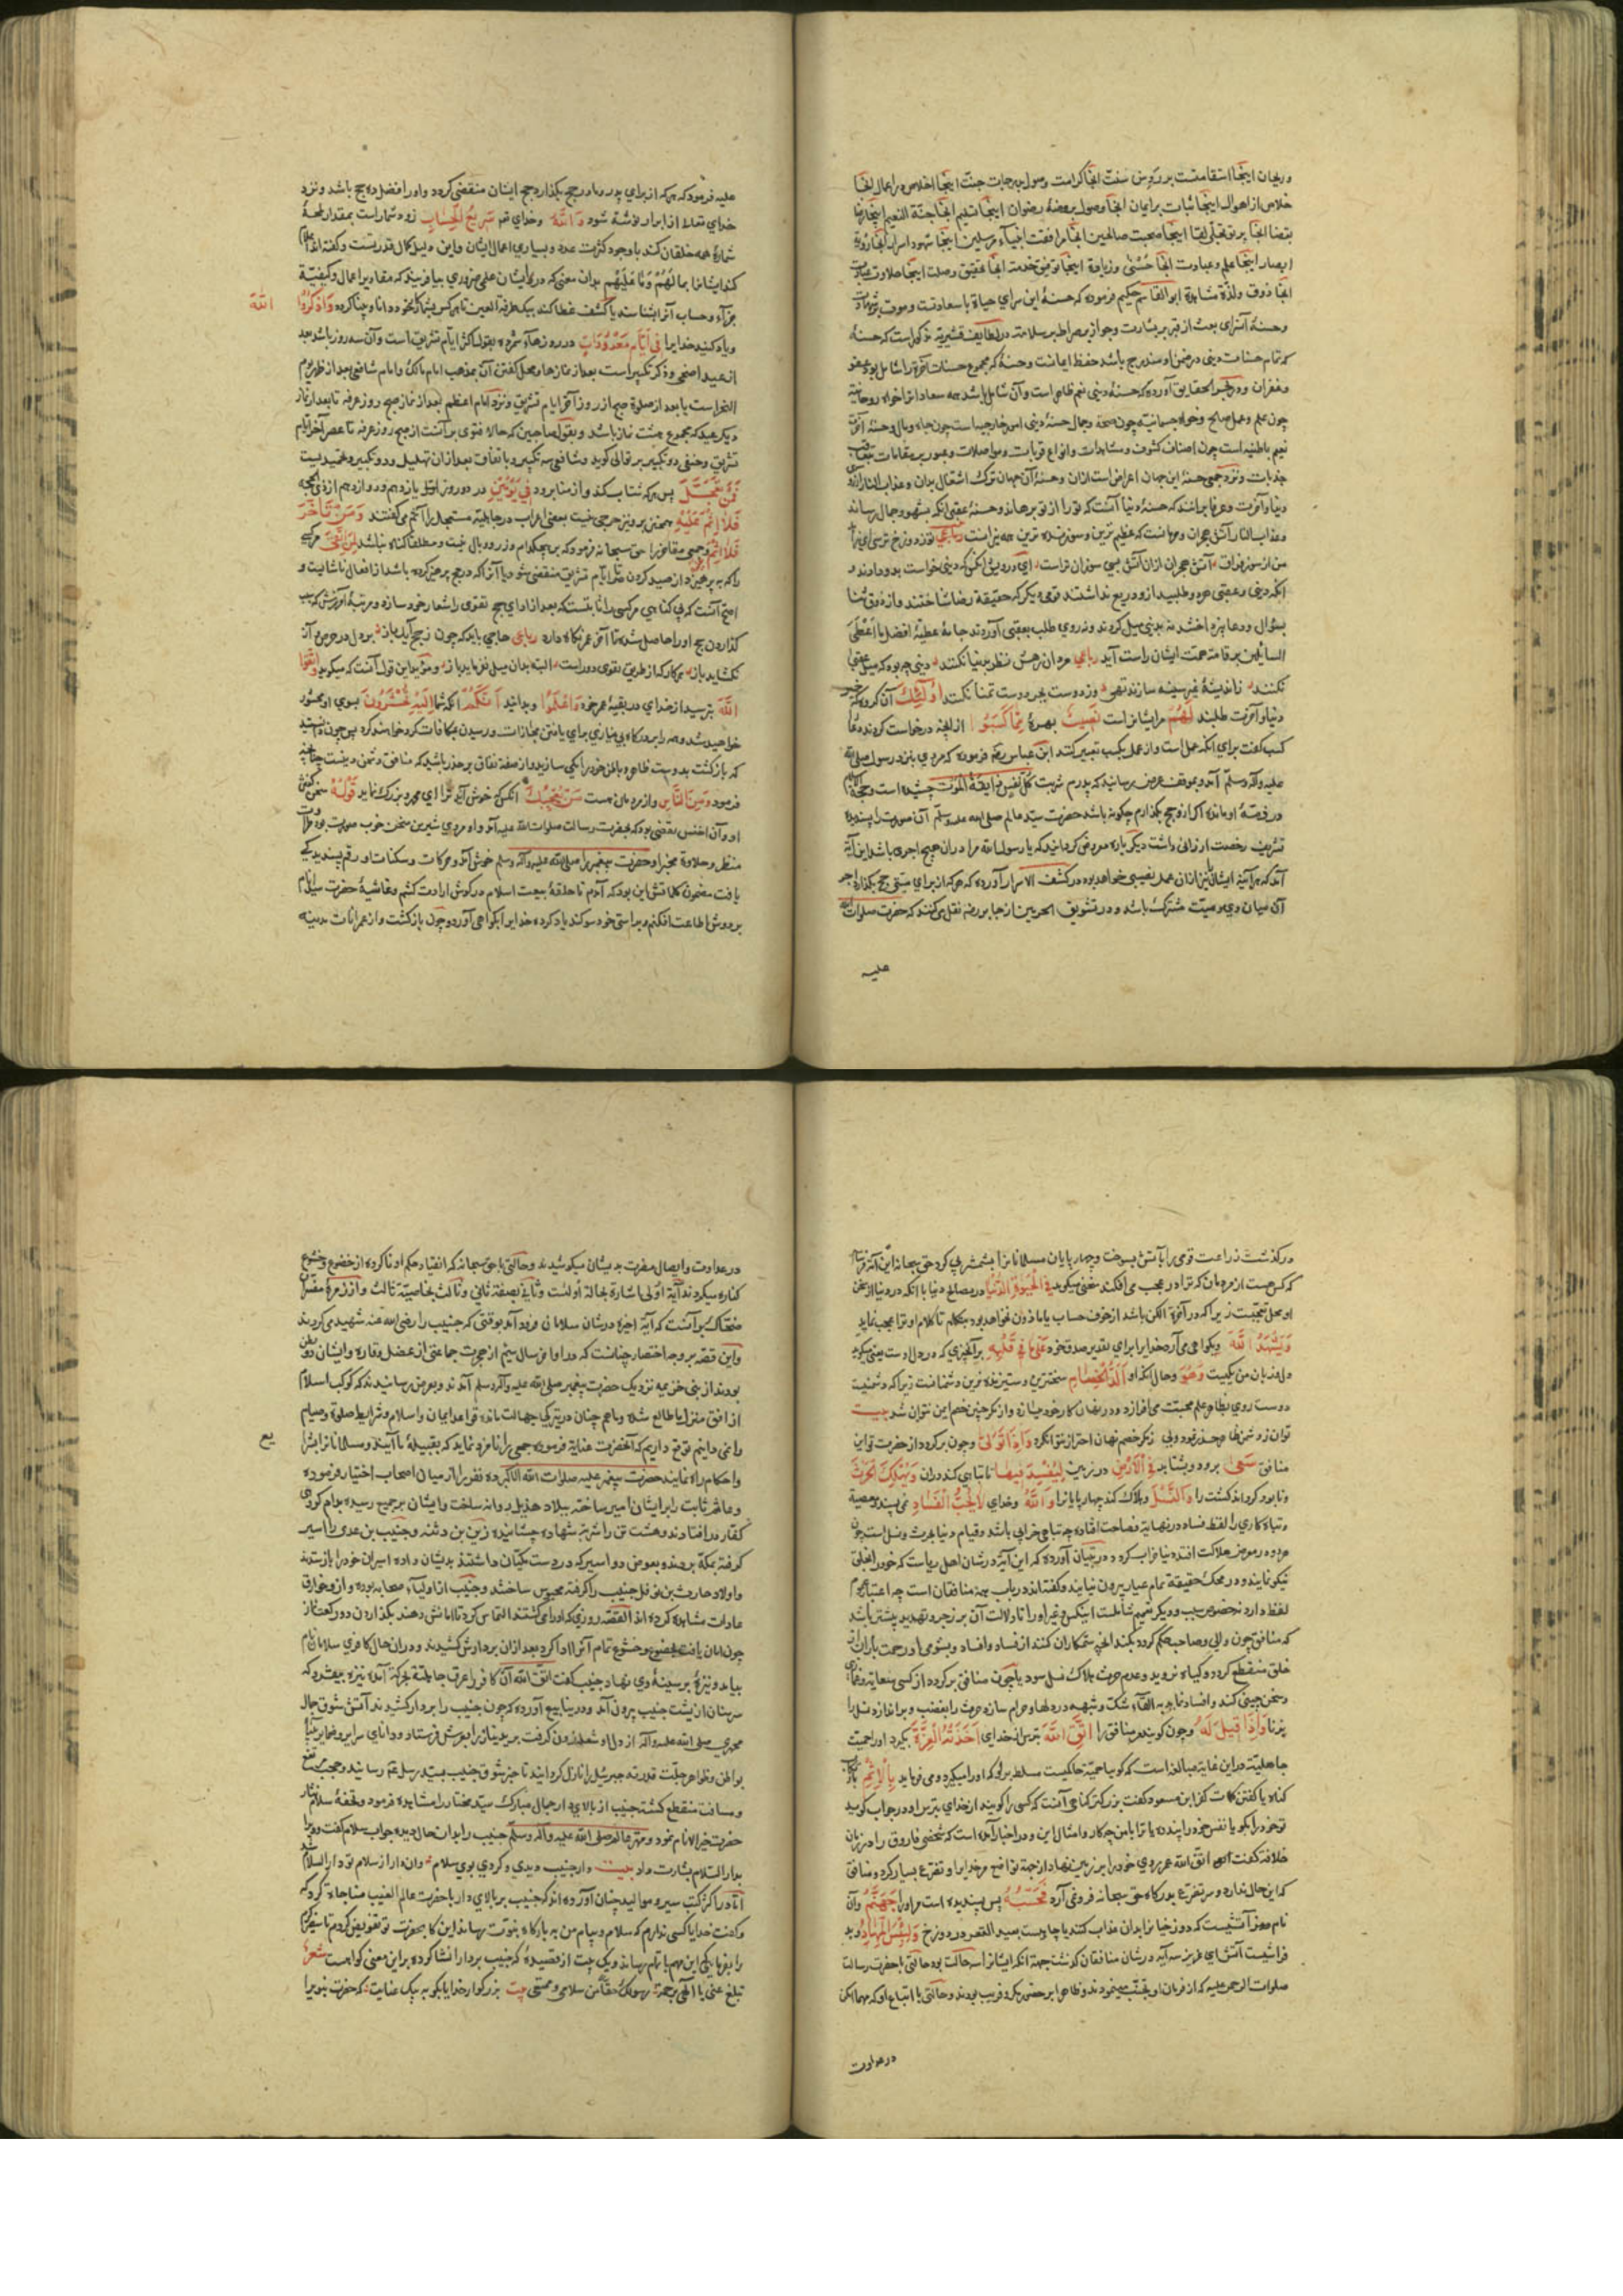 خلاص از اهوال اینجا ثبات بر ایمان آنجا وصول بروضهٔ رضوان اینجا تسلیم آنجا جنة النعیم اینجا رضا
بقضا آنجا لقا اینجا صحبت صالحین آنجا مرافقت انبیاء مرسلین اینجا شهود اسرار آنجا رؤیة
ابصار اینجا علم و عبادت آنجا حُسْنیٰ و زیادة اینجا توفیق خدمت آنجا تحقیق وصلت اینجا حلاوت عبادت
آنجا ذوق و لذة مشاهدة ابو القاسم حکیم فرموده که حسنهٔ این سرای حیاة با سعادتست و موت بر شهادت
و حسنهٔ آن سرای بعث از قبر بر بشارت و جواز بر صراط بر سلامت در لطایف قشیریه مذکور است که حسنهٔ
و غفران و در آورده که حسنهٔ دنیی نعیم ظاهر است و آن شامل باشد همه سعاداترا خواه روحانیه
چون علم و عمل صالح و خواه جسمانیه چون صحة و جمال حسنهٔ دنیی امور خارجیست چون جاه و مال و حسنهٔ آخرت
نعیم باطنیه است چون اصناف کشوف و مشاهدات و انواع قربات و مواصلات و عبور بر مقامات
جذبات و نزد جمعی حسنهٔ این جهان اعراض است از آن و حسنهٔ آن جهان ترک اشتغال بدان و عذاب النار
دنیا و آخرت و عرفا برانند که حسنهٔ دنیا آنست که ترا از تو برهاند و حسنهٔ عقبی آنکه بشهود جمال رساند
و عذاب النار آتش هجران و حرمانست که عظیم ترین و سوزنده ترین همه نیرانست رباعی
من از سوز فراق آتش هجران از آن آتش بسی سوزان تر است ای درویش آنکس که دنیی خواست بدو دادند و
انکه دنیی و عقبی هر دو طلبید ازو دریغ نداشتند قومی دیگر که حقیقة رضا شناختند و از ذوق ثنا
بسؤال و دعا نپرداختند نه بدنیی میل کردند و نه روی طلب بعقبی آوردند جامهٔ عطیهٔ افضل ما اُعْطَی
السائلین بر قامت همت ایشان راست آید رباعی مردان رهش نظر بدنیا نکنند دنیی چه بود که میل عقبی
نکنند تا اندیشهٔ غیر سینه سازند تهی وز دوست بجز دوست تمنا نکنند اُولٰئِکَ آن گروه که خیر
دنیا و آخرت طلبند لَهُمْ مر ایشانراست نَصِیبٌ بهرهٔ مِمَّا کَسَبُوا از انچه درخواست کردند دعا را
کسب گفت برای آنکه عمل است و از عمل بکسب تعبیر کنند ابن عباس رضه فرموده که مردی بنزد رسول صلی الله
علیه و آله و سلم آمد و بموقف عرض رسانید که پدرم شربت کُلُّ نَفْسٍ ذَائِقَةُ الْمَوْت چشیده است و حجة الاسلام
در ذمهٔ او مانده اگر ازو حج بگذارم چگونه باشد حضرت سید عالم صلی الله علیه و سلم آن صورت را پسندیده
تشریف رخصت ارزانی داشت دیگر باره معروض گردانید که یا رسول الله مرا در آن حج اجری باشد این آیة
آمد که هر آینه ایشانرا نیز از آن عمل نصیبی خواهد بود در کشف الاسرار آورده که هر که از برای میتی حج بگذارد اجر
آن میان وی و میت مشترک باشد و در تشویق الحرمین از جابر رضه نقل میکنند که حضرت صلوات الله
علیه
علیه فرمود که هر که از برای پدر و مادر حج بگذارد حج ایشان منقضی گردد و او را فضل ده حج باشد و نزد
خدای تعالی از ابرار نوشته شود وَاللّٰهُ و خدای تعـ سَرِیعُ الْحِسَابِ زود شمار است بمقدار لمحهٔ
شمارهٔ همه خلقان کند با وجود کثرت عدد و بسیاری اعمال ایشان و این دلیل کمال قدرتست و گفته اند اعلام
کند ایشانرا بما لَهُمْ وَمَا عَلَیْهِم بدان معنی که در دل ایشان علمی ضروری بیافریند که مقادیر اعمال و کیفیة
جزآء و حساب آنرا بشناسند یا کشف غطا کند بیک طرفة العین تا هر کس بشمار خود دانا و بینا گردد وَاذْکُرُوا اللّٰهَ
و یاد کنید خدایرا فِی اَیَّامٍ مَعْدُودَاتٍ در روزهاء شمرده بقول اکثر ایام تشریق است و آن سه روز باشد بعد
از عید اضحی و ذکر تکبیر است بعد از نمازها و محل گفتن آن بمذهب امام مالک و امام شافعی بعد از ظهر یوم
النحر است یا بعد از صلوة صبح از روز آخر ایام تشریق و نزد امام اعظم بعد از نماز صبح روز عرفه تا بعد از نماز
دیگر عید که مجموع هشت نماز باشد و بقول صاحبین که حالا فتوی بر آنست از صبح روز عرفه تا عصر آخر ایام
تشریق و حنفی دو تکبیر بر توالی گوید و شافعی سه تکبیر و باتفاق بعد از آن تهلیل و دو تکبیر و تحمید نیست
فَمَنْ تَعَجَّلَ پس هر که شتاب کند و از منا برود فِی یَوْمَیْنِ در دو روز اول یازدهم و دوازدهم از ذی الحجه
فَلَا اِثْمَ عَلَیْهِ پس برو نیز حرجی نیست بعضی اعراب در جاهلیة مستعجل را آثم می گفتند وَمَنْ تَأَخَّرَ
فَلَا اِثْمَ و جمعی متأخر را حق سبحانه فرمود که بر هیچکدام وزر و وبال نیست و مطلقا گناه نباشد لِمَنِ اتَّقٰی مر کسی
را که بپرهیزد از صید کردن تا ایام تشریق منقضی شود یا آنرا که در حج پرهیز کرده باشد از افعال ناشایست و
اصح آنست که بی گناهی مر کسی را ثابتست که بعد از ادای حج تقوی را شعار خود سازد و مرتبهٔ آمرزش که بسبب
گذاردن حج او را حاصل شده تا آخر عمر نگاه دارد رباعی حاجی باید که چون ز حج آید باز بر دل در حرص و آز
نگشاید باز هر کار که از طریق تقوی دور است البته بدان میل نفرماید باز و مؤید این قول آنست که میگوید وَاتَّقُوا
اللّٰهَ بترسید از خدای در بقیهٔ عمر خود وَاعْلَمُوا و بدانید اَنَّکُمْ آنکه شما اِلَیْهِ تُحْشَرُونَ بسوی او محشور
خواهید شد و همه را بدرگاه بی نیازی برای یافتن مجازات و رسیدن بمکافات گرد خواهند کرد پس چون دانستید
که بازگشت بدوست ظاهر و باطن خود را یکی سازید و از صفة نفاق بر حذر باشید که منافق دشمن دینست چنانچه
فرمود وَمِنَ النَّاسِ و از مردمان هست مَنْ یُعْجِبُکَ آنکس که خوش آید ترا ای محمد و بزرگ نماید قَوْلُهُ سخن گفتن
او و آن اخنس ثقفی بود که بحضرت رسالت صلوات الله علیه آمد و او مردی شیرین سخن خوب صورت بود طراوت
منظر و حلاوة مخبر او حضرت پیغمبر را صلی الله علیه و آله و سلم خوش آمد و حرکات و سکنات او رقم پسندیدگی
یافت مضمون کلماتش این بود که آمدم تا حلقهٔ بیعت اسلام در گوش ارادت کشم و غاشیهٔ حضرت سید انام
بر دوش اطاعت افکنم و بر راستی خود سوگند یاد کرده خدایرا بگواهی آورد و چون بازگشت و از عمرانات مدینه
درگذشت زراعت قومی را بآتش بسوخت و چهارپایان مسلمانانرا بشمشیر پی کرد حق سبحانه این آیة فرستاد
که کس هست از مردمان که ترا در عجب می افکند سخنی میگوید فِی الْحَیٰوةِ الدُّنْیَا در مصالح دنیا با آنکه در دنیا از سخن
او محل تعجبست زیرا که در آخرة الکن باشد از خوف حساب یا ماذون نخواهد بود بتکلم تا کلام او ترا بعجب نماید
وَیُشْهِدُ اللّٰهَ و بگواهی می آرد خدایرا برای تقدیر صدق خود عَلٰی مَا فِی قَلْبِهِ بر آنچیزی که در دل اوست یعنی میگوید
دل و زبان من یکیست وَهُوَ و حال آنکه او اَلَدُّ الْخِصَامِ سختترین و ستیزنده ترین دشمنانست زیرا که دشمنیست
دوست روی بظاهر علم محبت می افرازد و در نهان کار خود میسازد و از مکر چنین خصم ایمن نتوان شد بیت
توان ز دشمن ظاهر حذر نمود ولی ز مکر خصم نهان احتراز نتوان کرد وَاِذَا تَوَلّٰی و چون برگردد از حضرت تو این
منافق سَعٰی برود و بشتابد فِی الْاَرْضِ در زمین لِیُفْسِدَ فِیهَا تا تباهی کند در آن وَیُهْلِکَ الْحَرْثَ
و نابود گرداند کشت را وَالنَّسْلَ و هلاک کند چهارپایانرا وَاللّٰهُ و خدای لَا یُحِبُّ الْفَسَادَ نمی پسندد معصیة
و تباه کاری را لفظ فساد در نهایة فصاحت افتاده چه تباهی خرابی باشد و قیام دنیا بحرث و نسل است چون
هر دو در معرض هلاکت افتد دنیا خراب گردد و در تبیان آورده که این آیة در شان اهل ریاست که خود را بخلق
نیکو نمایند و در محک حقیقة تمام عیار بیرون نیایند و گفته اند در باب همه منافقان است چه اعتبار عموم
لفظ دارد نه خصوص سبب و دیگر تعمیم شاملست اینکس و غیر او را تا دلالت آن بر زجر و تهدید بیشتر باشد
که منافق چون والی و صاحب حکم گردد بکند انچه ستمکاران کنند از فساد و افساد و بشومی او رحمت باران از
خلق منقطع گردد و گیاه نروید و عدم حرث هلاک نسل سود یا چون منافق برگردد از کسی بسعایت و غمازی
و سخن چینی کند و افساد نماید بالقاء شک و شبهه در دلها و حرام سازد حرث را بغضب و براندازد نسل را
بزنا وَاِذَا قِیلَ لَهُ و چون گویند مر منافق را اتَّقِ اللّٰهَ بترس از خدای اَخَذَتْهُ الْعِزَّةُ بگیرد او را حمیت
جاهلیة در این غایة مبالغه است که گویا حمیة حاکمیست مسلط بر وی که او را میگیرد و می فرماید بِالْاِثْمِ
گناه یا گفتن کلمات کفر ابن مسعود گفت بزرگتر گناهی آنست که کسی را گویند از خدای بترس او در جواب گوید
تو خود را بگو یا نفس خود را پند ده یا ترا با من چکار و امثال این و در اخبار آمده است که شخصی فاروق را در زمان
خلافة گفت اتق الله عمر روی خود را بر زمین نهاد از جهة تواضع مر خدایرا و تضرع بسیار کرد و منافق
که این حال ندارد و سر تضرع بدرگاه حق سبحانه فرو نمی آرد فَحَسْبُهُ پس پسندیده است مر او را جَهَنَّمُ و آن
نام موضع آتشیست که دوزخیانرا بدان عذاب کنند یا چاهیست بعید القعر در دوزخ وَلَبِئْسَ الْمِهَادُ و بد
فراشیست آتش ای عزیز سه آیه در شان منافقان گذشت جهة آنکه ایشانرا سه حالت بود حالتی با حضرت رسالت
صلوات الرحمن علیه که از فرمان او تجنب مینمودند و ظاهرا بر حضور مکر و فریب بودند و حالتی با اتباع او که مهما امکن
در عداوت
در عداوت و ایصال مضرت بدیشان میکوشیدند و حالتی با حق سبحانه که انقیاد حکم او ناکرده از خضوع و خشوع
کناره میکردند آیة اولی اشارة بحالة اولست و ثانی بصفة ثانی و ثالث بخاصیة ثالث و از زمرهٔ مفسران
ضحاک بر آنست که آیة اخیره در شان سلامان فرود آمد بوقتی که خبیب را رضی الله عنه شهید می کردند
و این قصه بر وجه اختصار چنانست که در اواخر سال سیم از هجرت جماعتی از عضل و قاره و ایشان دو بطن
بودند از بنی خزیمه نزدیک حضرت پیغمبر صلی الله علیه و آله و سلم آمدند و بعرض رسانیدند که کوکب اسلام
از افق منزل ما طالع شده و ما هم چنان در تیرگی جهالت مانده قواعد ایمان و اسلام و شرایط صلوة و صیام
را نمی دانیم توقع داریم که آنحضرت عنایة فرموده جمعی را نامزد نماید که بقبیلهٔ ما آیند و مسلمانانرا بشرایع
و احکام راه نمایند حضرت پیغمبر علیه صلوات الله الاکبر ده نفر را از میان اصحاب اختیار فرموده
و عاصم ثابت را بر ایشان امیر ساخته ببلاد هذیل روانه ساخت و ایشان بر جمیع رسیده بدام کوری
کفار در افتادند و هشت تن را شربت شهاده چشانیده زید بن دثنه و خبیب بن عدی را اسیر
گرفته بمکه بردند و بعوض دو اسیر که در دست مکیان داشتند بدیشان داده اسیران خود را باز ستدند
و اولاد حارث بن نوفل خبیب را گرفته محبوس ساختند و خبیب از اولیاء صحابه بوده و ازو خوارق
عادات مشاهده کرده اند القصه روزی که او را می کشتند التماس کرد تا امانش دهند بگذاردن دو رکعت نماز
چون امان یافت بخضوع و خشوع تمام آنرا ادا کرد بعد از آن بر دارش کشیدند و در آن حال کافری سلامان نام
بیامد و نیزهٔ بر سینهٔ وی نهاد خبیب گفت اتق الله آن کافر را عرق جاهلیة بحرکة آمده نیزه بیفشرد که
سر سنان از پشت خبیب بیرون آمد و در ینابیع آورده که چون خبیب را بر دار کشیدند آتش شوق جمال
محمدی صلی الله علیه و آله از دل او شعله زدن گرفت برید نیاز را بعرش فرستاد و دانای سرایر و ضمایر
بواطن و ظواهر جلت قدرته جبرئیل را نازل گردانید تا خبر شوق خبیب بسید رسل عم رسانید و حجب مرتفع
و مسافت منقطع گشته خبیب از بالای دار جمال مبارک سید مختار را مشاهده فرمود و تحفهٔ سلام نثار
حضرت خیر الانام نمود و مهتر عالم صلی الله علیه و آله و سلم خبیب را بدان حال دیده جواب سلام گفت و ویرا
بدار السلام بشارت داد بیت دار خبیب دیدی و کردی بوی سلام وان دار از سلام تو دار السلام شد
اما در اکثر کتب سیر و موالید چنان آورده اند که خبیب بر بالای دار با حضرت عالم الغیب مناجاة کرد که
و گفت خدایا کسی ندارم که سلام و پیام من به بارگاه نبوت رساند این کار بحضرت تو تفویض کردم تا سفیر کرم
را بفرما یکی این مهم باتمام رساند و یک بیت از قصیدهٔ که خبیب بر دار انشا کرده بر این معنی گواهست شعر